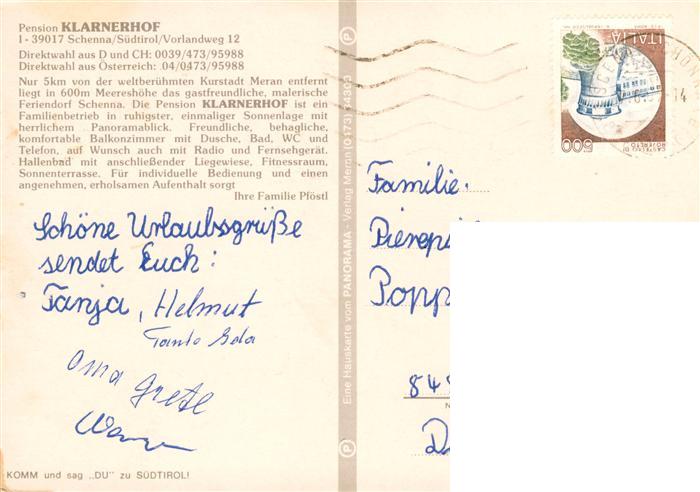 Pension KLARNERHOF
I - 39017 Schenna/Südtirol/Vorlandweg 12
Direktwahl aus D und CH: 0039/473/95988
Direktwahl aus Österreich: 04/0473/95988
Nur 5km von der weltberühmten Kurstadt Meran entfernt
liegt in 600m Meereshöhe das gastfreundliche, malerische
Feriendorf Schenna. Die Pension KLARNERHOF ist ein
Familienbetrieb in ruhigster, einmaliger Sonnenlage mit
herrlichem Panoramablick. Freundliche, behagliche,
komfortable Balkonzimmer mit Dusche, Bad, WC und
Telefon, auf Wunsch auch mit Radio und Fernsehgerät.
Hallenbad mit anschließender Liegewiese, Fitnessraum,
Sonnenterrasse. Für individuelle Bedienung und einen
angenehmen, erholsamen Aufenthalt sorgt
Ihre Familie Pföstl
Schöne Urlaubsgrüße
sendet Euch:
Tanja, Helmut
Tante
Oma Gretl
KOMM und sag „DU" zu SÜDTIROL!
Eine Hauskarte vom PANORAMA - Verlag Meran (0-173) 54300
ITALIA
500
CASTELLO DI
ROVERETO
14
Familie
Popp
848
D